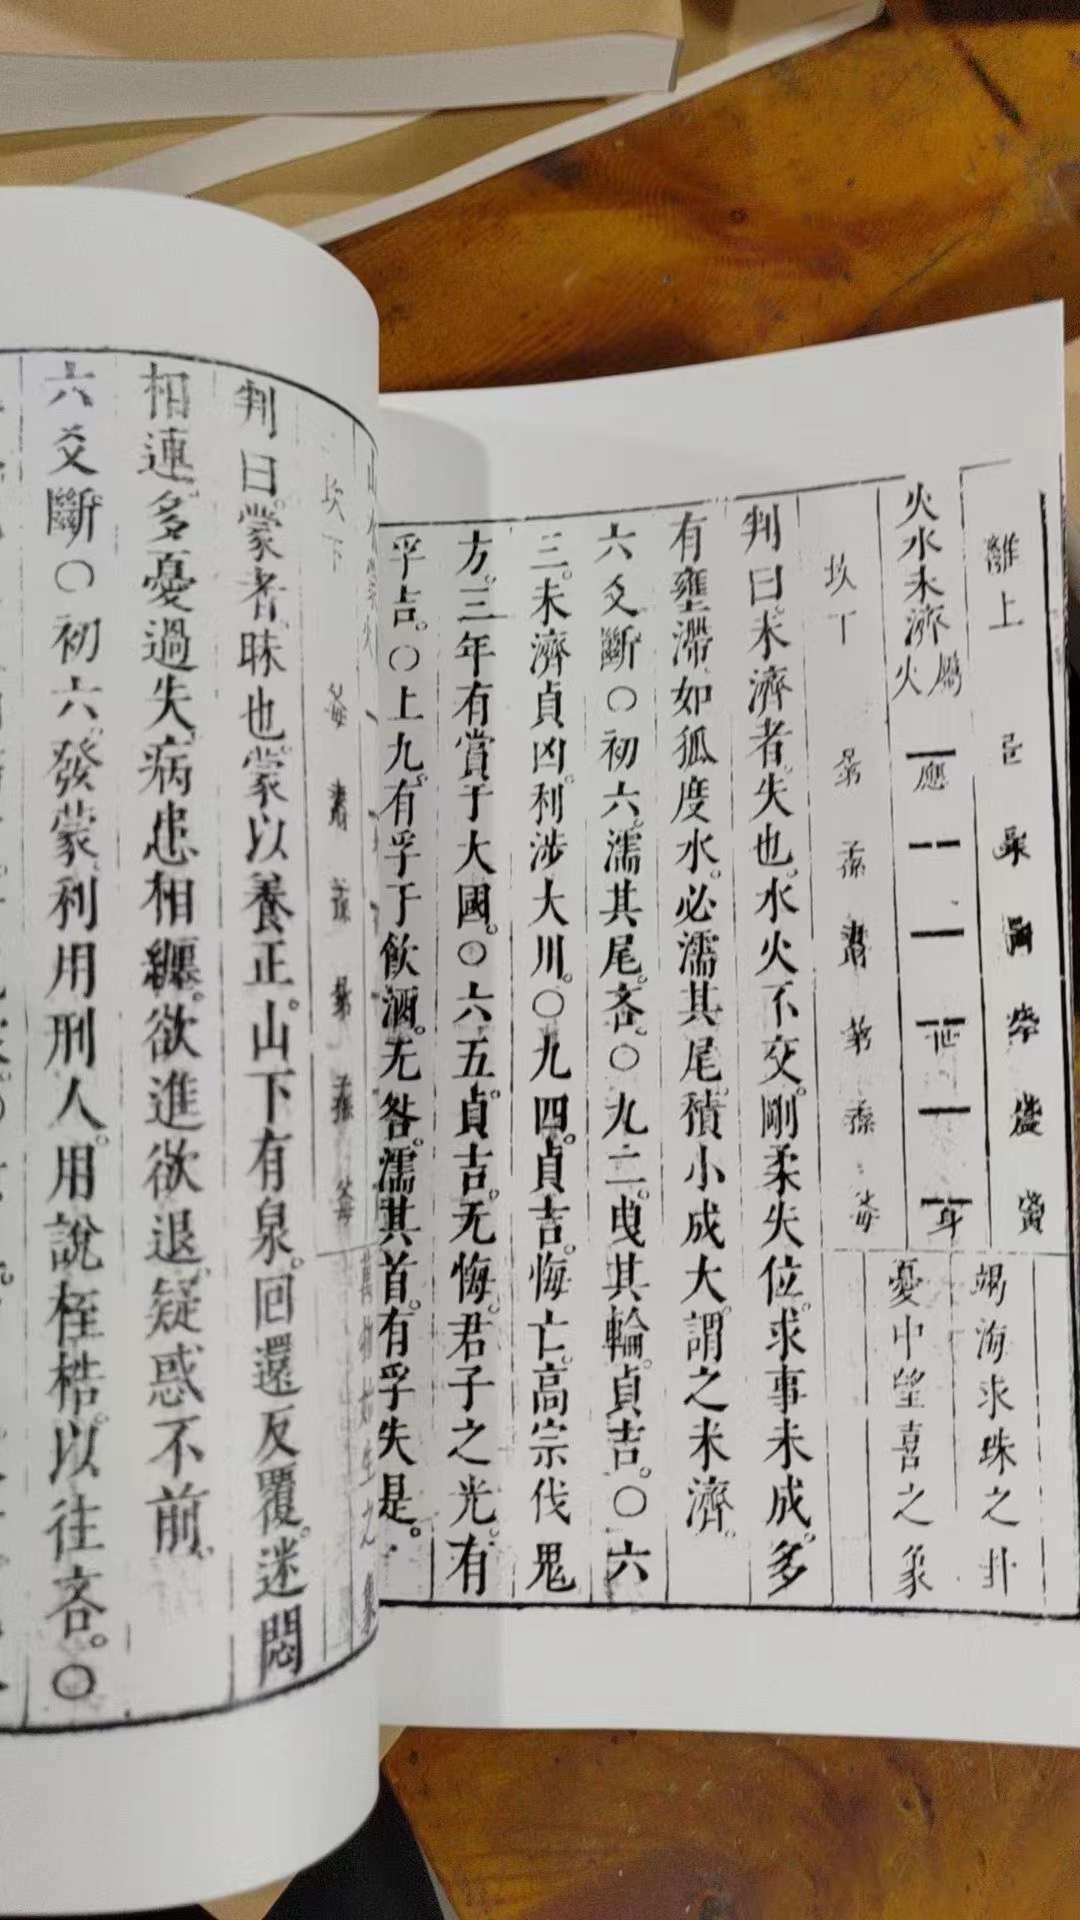 離上
竭海求珠之卦
火水未濟
屬火
應
世
身
憂中望喜之象
坎下
兄弟
子孫
妻財
兄弟
子孫
父母
判曰未濟者。失也。水火不交。剛柔失位。求事未成。多
有壅滯。如狐度水。必濡其尾。積小成大。謂之未濟。
六爻斷〇初六。濡其尾。吝。〇九二。曳其輪。貞吉。〇六
三。未濟貞凶。利涉大川。〇九四。貞吉。悔亡。高宗伐鬼
方。三年有賞于大國。〇六五。貞吉。无悔。君子之光。有
孚吉。〇上九。有孚于飲酒。无咎。濡其首。有孚失是。
坎下
父母
妻財
子孫
兄弟
子孫
父母
判曰。蒙者。昧也。蒙以養正。山下有泉。回還反覆。迷悶
相連。多憂過失。病患相纏。欲進欲退。疑惑不前。
六爻斷〇初六。發蒙。利用刑人。用說桎梏。以往吝。〇